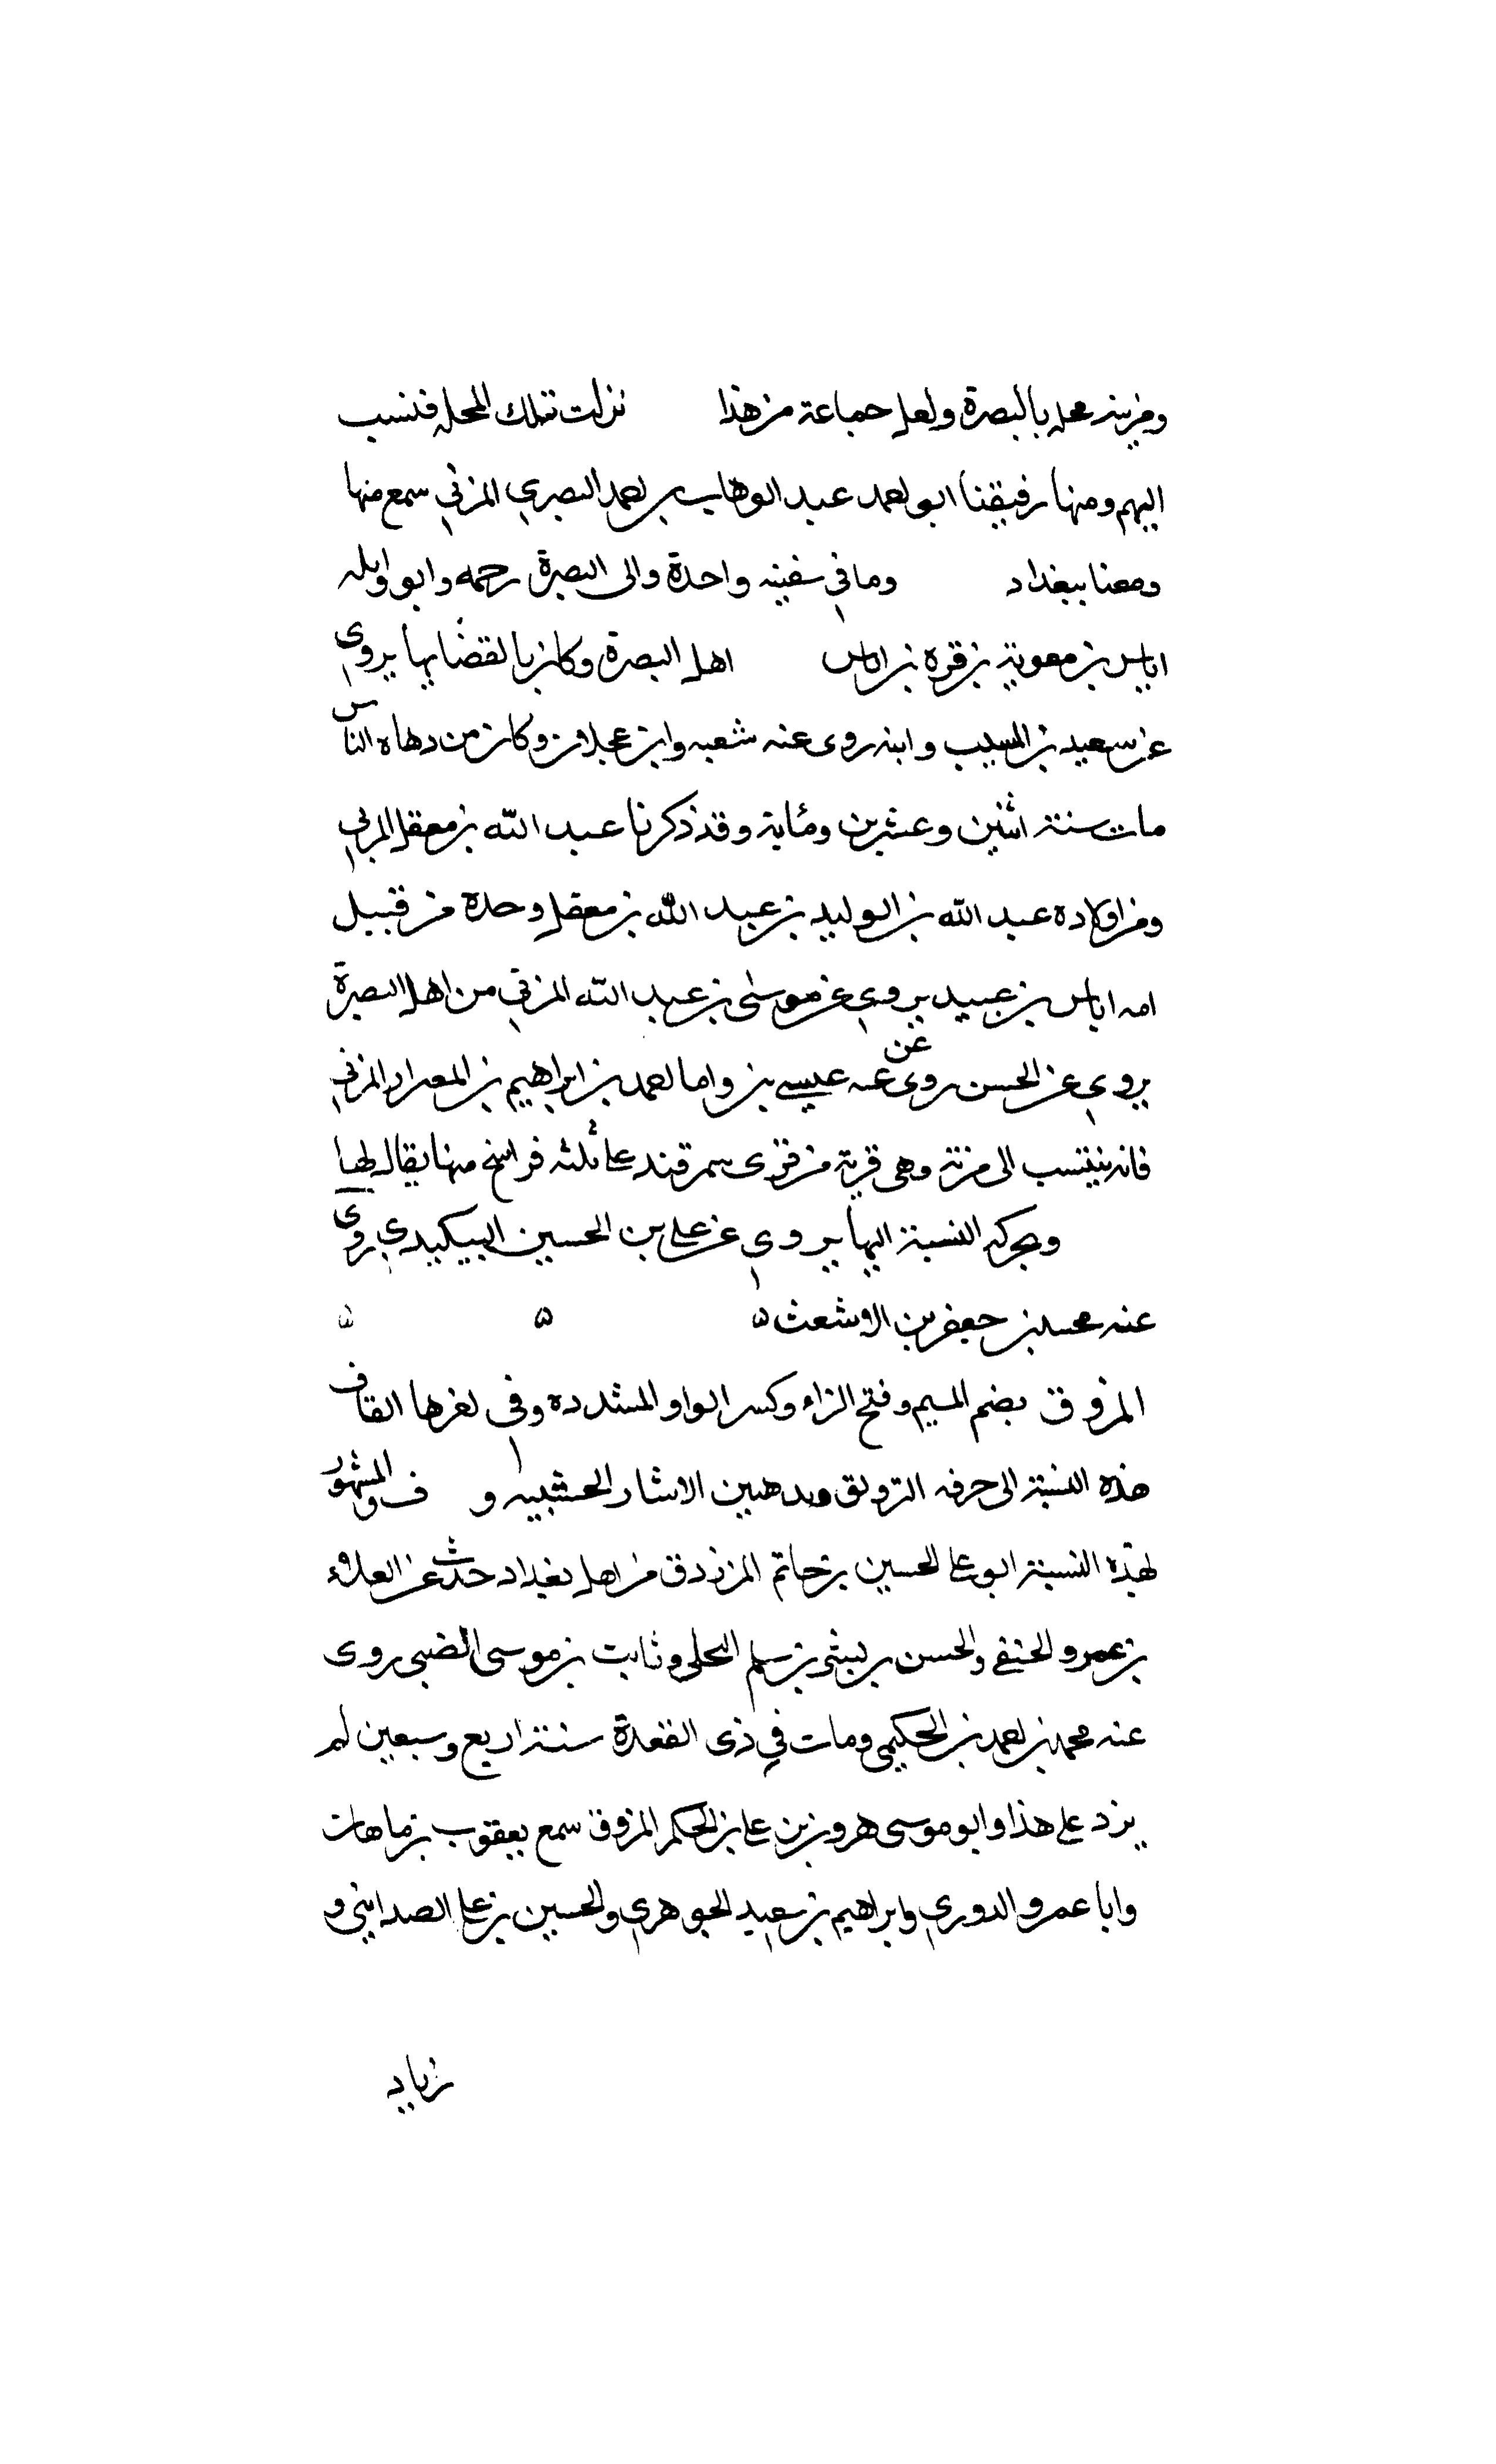 ومزينه محله بالبصرة ولعل جماعة من هذا نزلت تلك المحله فنسب
اليهم ومنها رفيقنا ابو احمد عبد الوهاب بن احمد البصري المزني سمع منها
ومعنا ببغداد وما في سفينه واحدة والى البصرة رحمه وابو وايله
اياس بن معوية بن قره بن اياس اهل البصرة وكان بالقضا بها يروى
عن سعيد بن المسيب وابنه روى عنه شعبه وابن عجلان وكان من دهاه الناس
مات سنة اثنين وعشرين ومائة وقد ذكرنا عبد الله بن معقل المزني
ومن اولاده عبد الله بن الوليد بن عبد الله بن معقل وحدة من قبيل
امه اياس بن عبيد يروي عن موسى بن عبد الله المزني من اهل البصرة
يروي عن الحسن روى عنه عن عيسى بن واما احمد بن ابراهيم بن المزني
فانه ينتسب الى مزنة وهى قرية من قرى سمرقند على ثلثه فراسخ منها يقال لها
وبحركه النسبة اليها يروي عن على بن الحسين البيكيدي روى
عنه محمد بن جعفر بن الاشعث ه ه ه
المزوق بضم الميم وفتح الزاء وكسر الواو المشدده وفي اخرها القاف
هذه النسبة الى حرفه التزويق وبدهين الاشار الخشبيه و ف والمشهور
بهذه النسبة ابو على الحسين بن حاتم المزردق من اهل بغداد حدث عن العلاء
بن عمرو الحنفي والحسن بن بشر بن سلم البجلي وثابت بن موسى الضبي روى
عنه محمد بن احمد بن الحكيمي ومات في ذى القعدة سنة اربع وسبعين لم
يزد على هذا وابو موسى هرون بن على بن الحكم المزوق سمع يعقوب بن ماهان
وابا عمرو الدوري وابراهيم بن سعيد الجوهري والحسين بن على الصدايني و
زياد